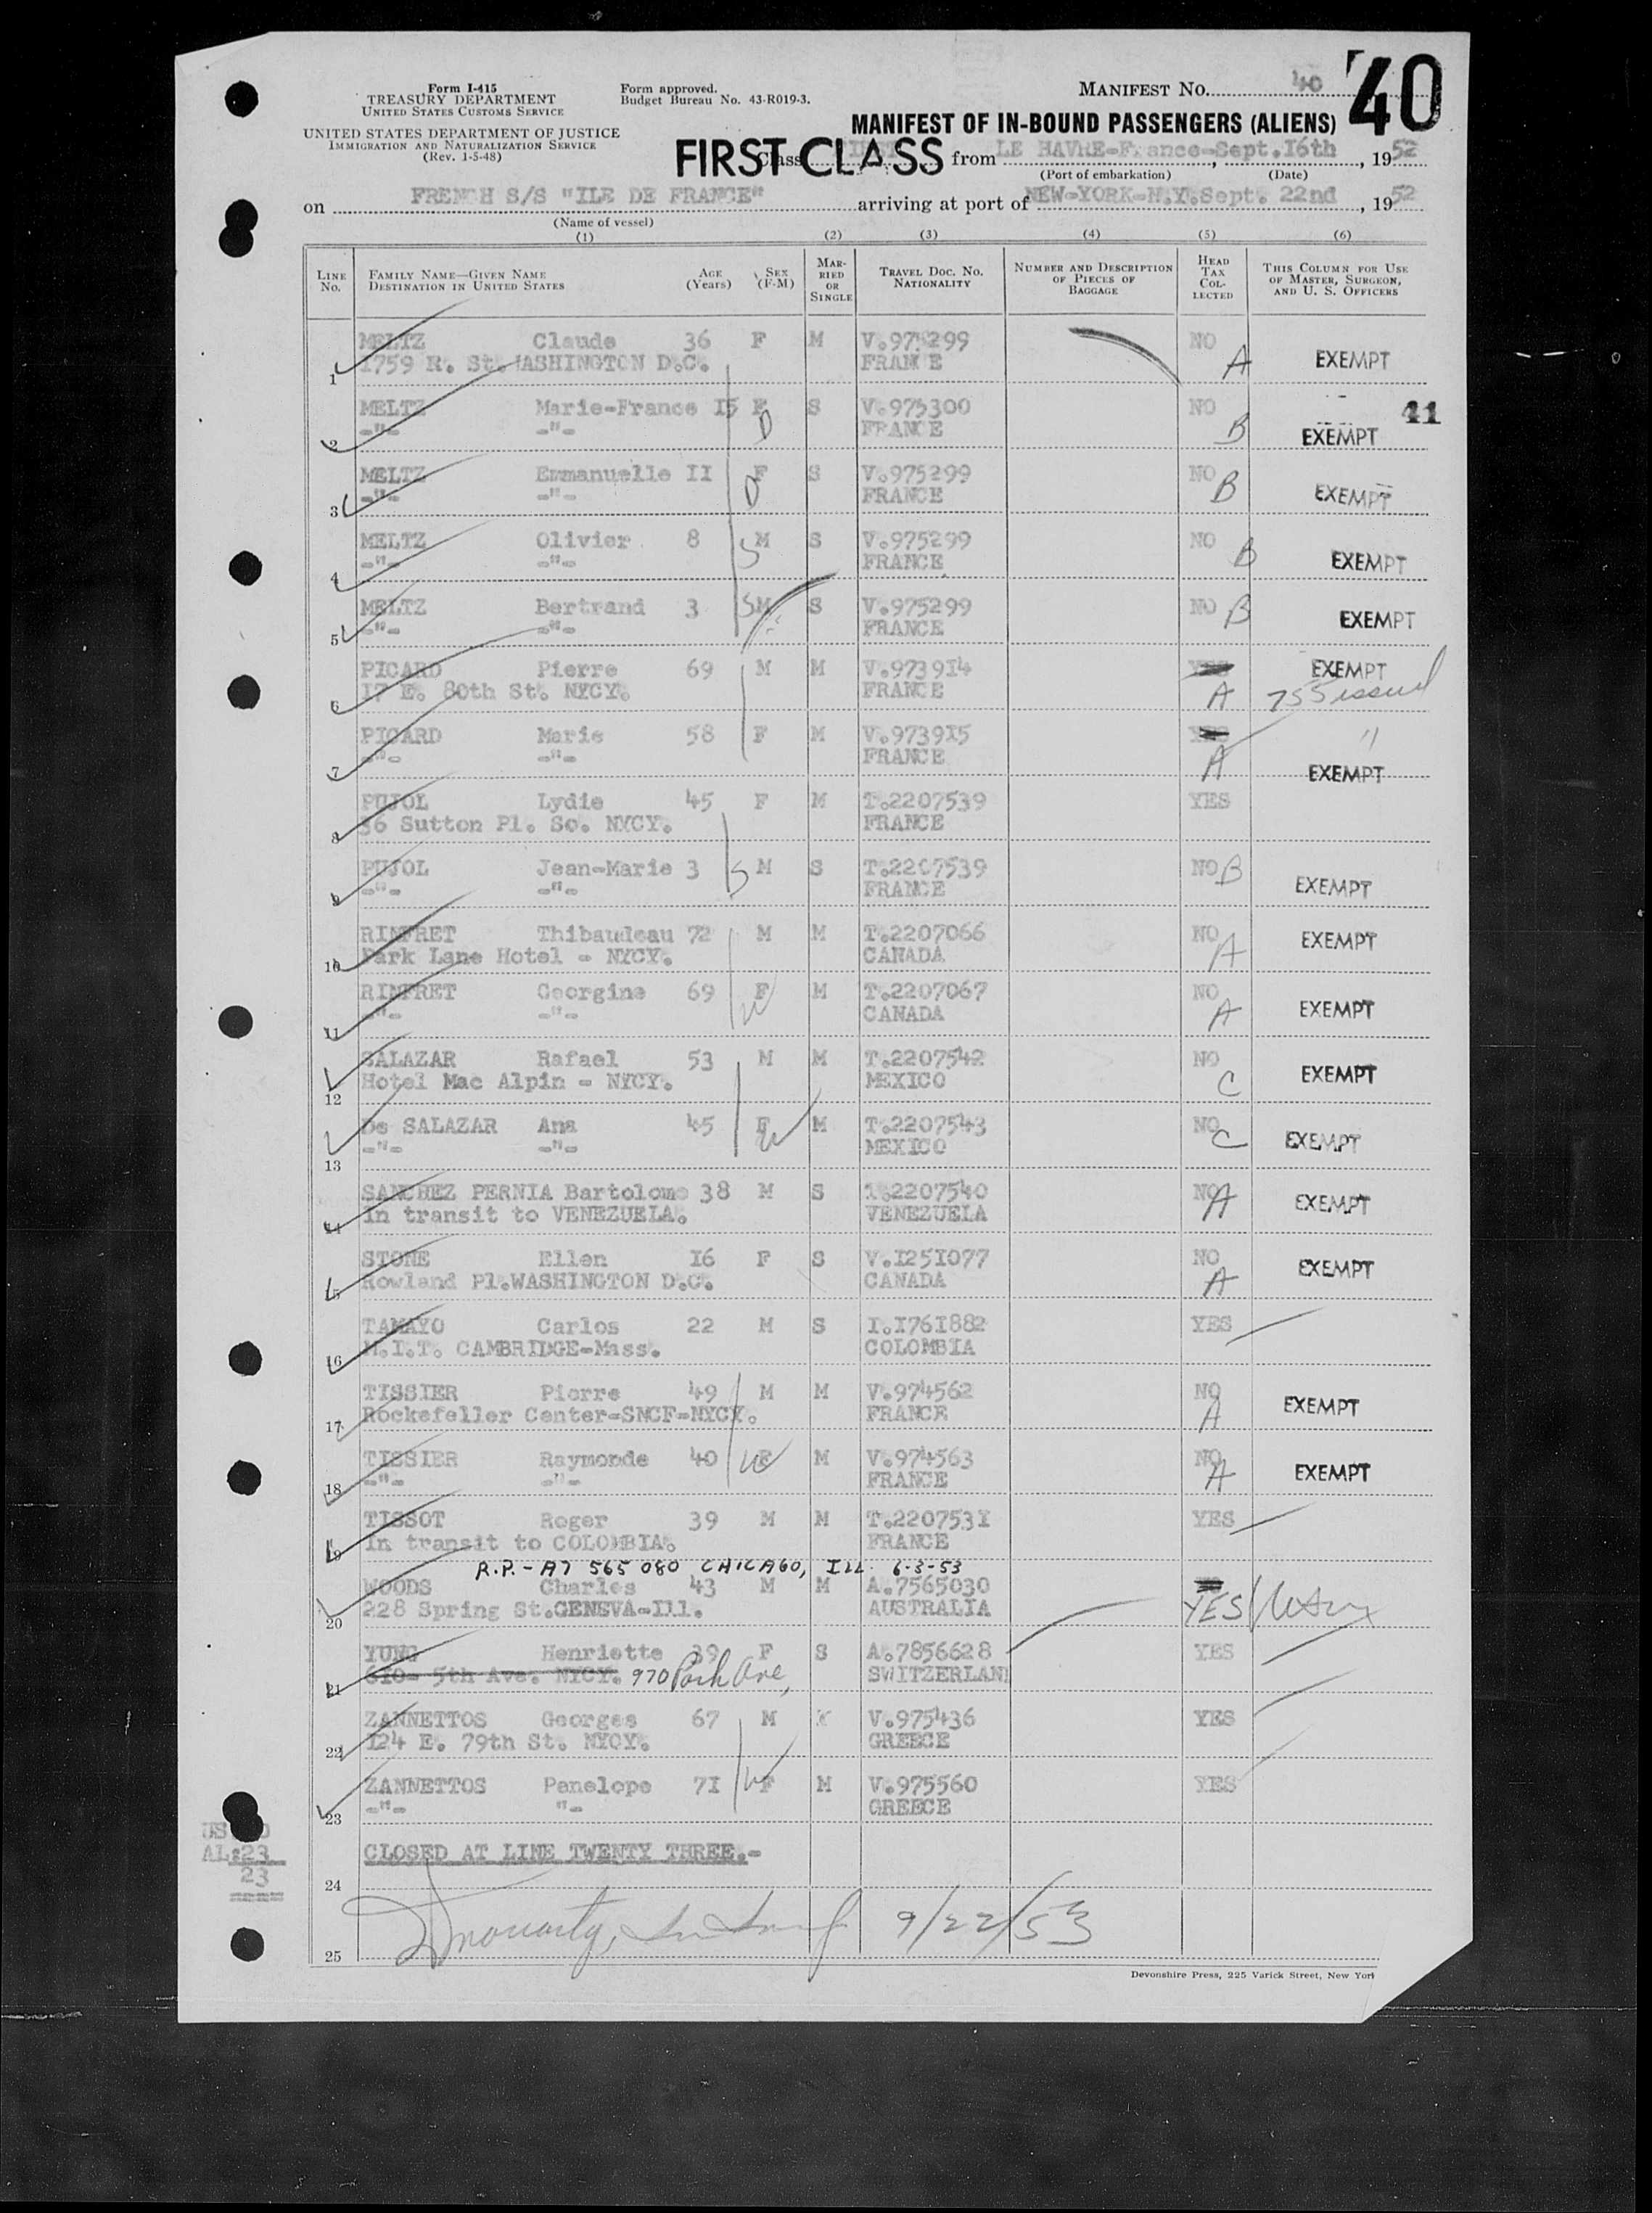 Form I-415
TREASURY DEPARTMENT
UNITED STATES CUSTOMS SERVICE
UNITED STATES DEPARTMENT OF JUSTICE
IMMIGRATION AND NATURALIZATION SERVICE
(Rev. 1-5-48)
Form approved.
Budget Bureau No. 43-R019-3.
MANIFEST NO. 40
40
MANIFEST OF IN-BOUND PASSENGERS (ALIENS)
FIRST CLASS
Class from LE HAVRE-France-Sept.16th, 1952
(Port of embarkation) (Date)
on FRENCH S/S "ILE DE FRANCE" arriving at port of NEW-YORK-N.Y.Sept. 22nd, 1952
(Name of vessel)
(1) (2) (3) (4) (5) (6)
LINE NO. FAMILY NAME—GIVEN NAME DESTINATION IN UNITED STATES AGE (Years) SEX (F-M) MARRIED OR SINGLE TRAVEL DOC. NO. NATIONALITY NUMBER AND DESCRIPTION OF PIECES OF BAGGAGE HEAD TAX COLLECTED THIS COLUMN FOR USE OF MASTER, SURGEON, AND U. S. OFFICERS
MELTZ Claude 36 F M V.975299 NO
1 1759 R. St. WASHINGTON D.C. FRANCE A EXEMPT
41
MELTZ Marie-France I5 F S V.975300 NO
2 -"- -"- D FRANCE B EXEMPT
MELTZ Emmanuelle II F S V.975299 NO
3 -"- -"- D FRANCE B EXEMPT
MELTZ Olivier 8 M S V.975299 NO
4 -"- -"- S FRANCE B EXEMPT
MELTZ Bertrand 3 S M S V.975299 NO B
5 -"- -"- FRANCE EXEMPT
PICARD Pierre 69 M M V.973914 YES EXEMPT
6 17 E. 80th St. NYCY. FRANCE A 755 issued
PICARD Marie 58 F M V.9739I5 YES "
7 -"- -"- FRANCE A EXEMPT
PUJOL Lydie 45 F M T.2207539 YES
8 36 Sutton Pl. So. NYCY. FRANCE
PUJOL Jean-Marie 3 S M S T.2207539 NO B
9 -"- -"- FRANCE EXEMPT
RINFRET Thibaudeau 72 M M T.2207066 NO EXEMPT
10 Park Lane Hotel - NYCY. CANADA A
RINFRET Georgine 69 F M T.2207067 NO
11 -"- -"- W CANADA A EXEMPT
SALAZAR Rafael 53 M M T.2207542 NO
12 Hotel Mac Alpin - NYCY. MEXICO C EXEMPT
De SALAZAR Ana 45 F M T.2207543 NO
13 -"- -"- W MEXICO C EXEMPT
SANCHEZ PERNIA Bartolome 38 M S T.2207540 NO A EXEMPT
14 In transit to VENEZUELA. VENEZUELA
STONE Ellen I6 F S V.I25I077 NO
15 Rowland Pl.WASHINGTON D.C. CANADA A EXEMPT
TAMAYO Carlos 22 M S I.I76I882 YES
16 M.I.T. CAMBRIDGE-Mass. COLOMBIA
TISSIER Pierre 49 M M V.974562 NO
17 Rockefeller Center-SNCF-NYCY. FRANCE A EXEMPT
TISSIER Raymonde 40 W F M V.974563 NO
18 -"- -"- FRANCE A EXEMPT
TISSOT Roger 39 M M T.220753I YES
19 In transit to COLOMBIA. FRANCE
R.P.-A7 565 080 CHICAGO, ILL. 6-3-53
WOODS Charles 43 M M A.7565030
20 228 Spring St.GENEVA-Ill. AUSTRALIA YES
YUNG Henriette 39 F S A.7856628 YES
21 610- 5th Ave. NYCY. 970 Park Ave, SWITZERLAND
ZANNETTOS Georges 67 M V.975436 YES
22 I24 E. 79th St. NYCY. GREECE
ZANNETTOS Penelope 7I W F M V.975560 YES
23 -"- "- GREECE
AL:23
23
CLOSED AT LINE TWENTY THREE.-
24
9/22/53
25
Devonshire Press, 225 Varick Street, New York